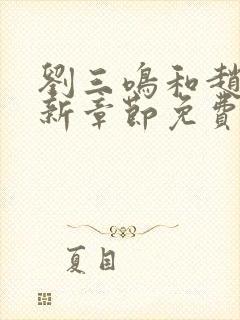 劉三鳴和趙
新章節免費
夏目